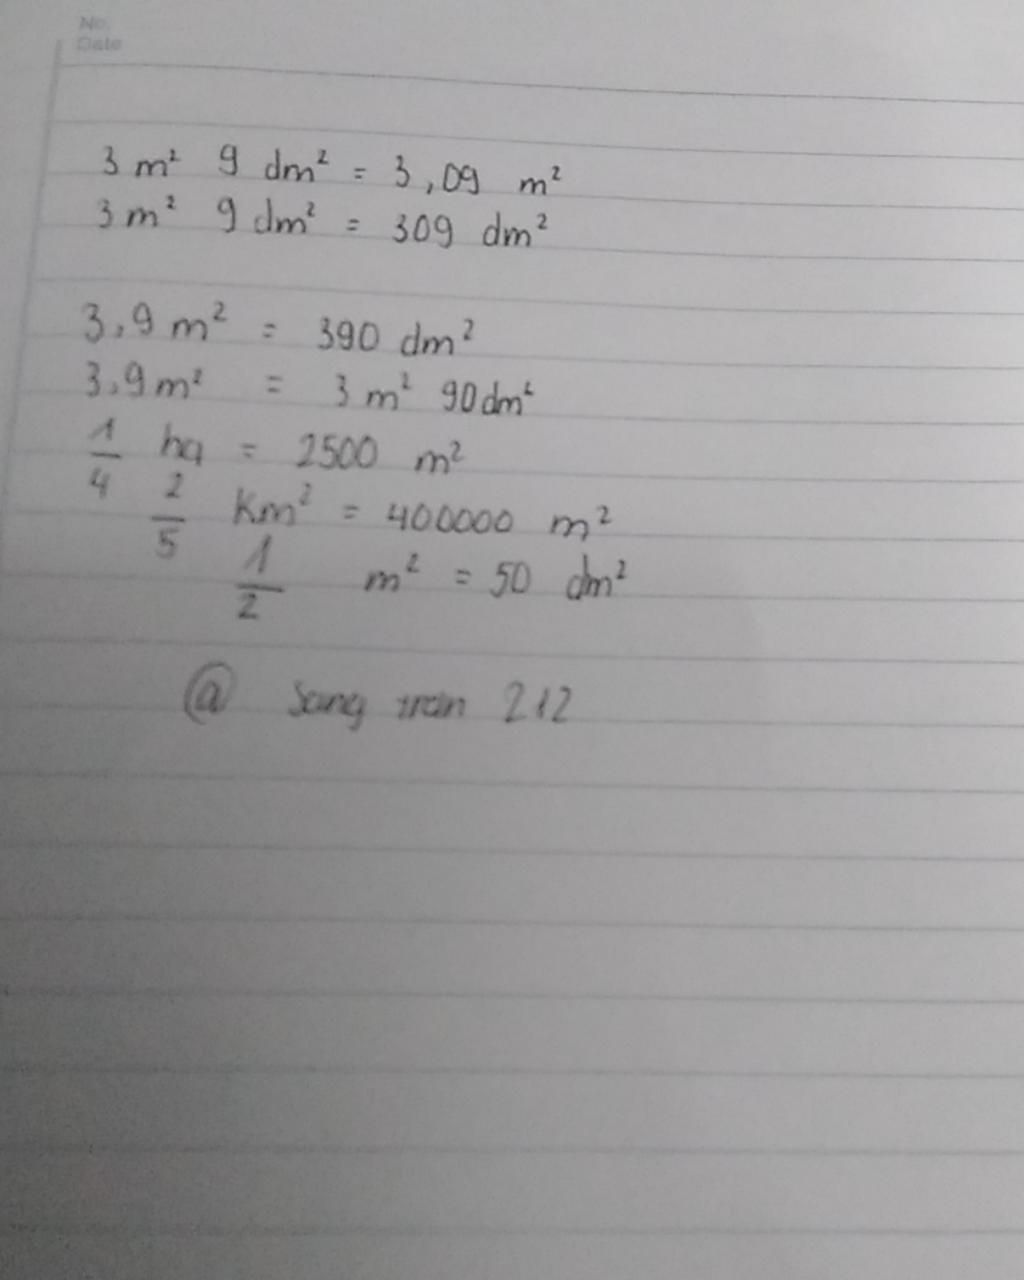 No.
Date
3 m² 9 dm² = 3,09 m²
3 m² 9 dm² = 309 dm²
3,9 m² = 390 dm²
3,9 m² = 3 m² 90 dm²
1/4 ha = 2500 m²
2/5 Km² = 400000 m²
1/2 m² = 50 dm²
@ Sang tran 212